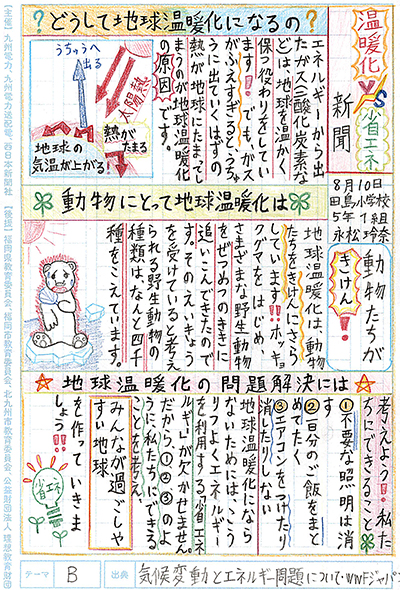 温暖化
VS
省エネ
新聞
8月10日
田島小学校
5年1組
永松玲奈
動物たちが
きけん!!
?どうして地球温暖化になるの?
エネルギーから出
たガス(二酸化炭素な
ど)は、地球を温かく
保つ役わりをしてい
ます!!でも、ガス
がふえすぎると、うちゅ
うに出ていくはずの
熱が地球にたまってし
まうのが地球温暖化
の原因です。
うちゅうへ
出る
太陽熱
熱が
たまる
地球の
気温が上がる!
動物にとって地球温暖化は
地球温暖化は、動物
たちをきけんにさら
しています!!ホッキョ
クグマをはじめ、
さまざまな野生動物
をぜつめつのききに
追いこんできたので
す。そのえいきょう
を受けていると考え
られる野生動物の
種類は、なんと四千
種をこえています。
地球温暖化の問題解決には
考えよう!私た
ちにできること
①不要な照明は消
す
②一百分のご飯をまと
めてたく
③エアコンをつけたり
消したりしない
地球温暖化になら
ないためには、こう
りつよくエネルギー
を利用する、省エネ
ルギーが欠かせません。
だから、①②③のよ
うに私たちにできる
ことを考え、
みんなが過ごしや
すい地球
を作っていきま
しょう!!
省エネ
テーマ
B
出典
気候変動とエネルギー問題について・WWFジャパン
【主催】九州電力、九州電力送配電、西日本新聞社 【後援】福岡県教育委員会、福岡市教育委員会、北九州市教育委員会、公益財団法人 理想教育財団